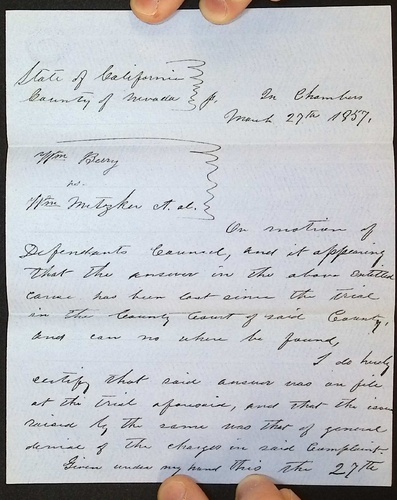 State of California
County of Nevada
In Chambers
March 27th 1857.
Wm Berry
vs.
Wm Metzker et. al.
On motion of
Defendants Counsel, and it appearing
that the answer in the above entitled
cause has been lost since the trial
in the County Court of said County,
and can no where be found,
I do hereby
certify that said answer was on file
at the trial aforesaid, and that the issue
raised by the same was that of general
denial of the charges in said Complaint.
Given under my hand this the 27th